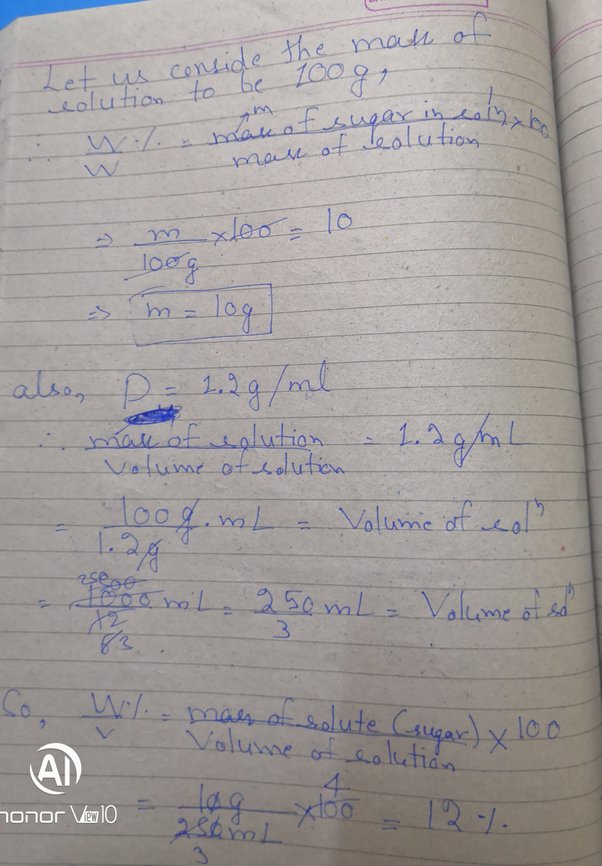 Let us conside the mass of
solution to be 100g,
∴ W/W % = mass of sugar in solⁿ/mass of solution × 100
m
⇒ m/100g × 100 = 10
⇒ m = 10g
also, D = 1.2g/ml
∴ mass of solution/Volume of solution = 1.2g/mL
= 100g/1.2g . mL = Volume of solⁿ
= 1000/12 mL = 250/3 mL = Volume of solⁿ
So, W/V % = mass of solute (sugar)/Volume of solution × 100
= 10g/250mL × 100 = 12 %.
3
4
AI
honor View10